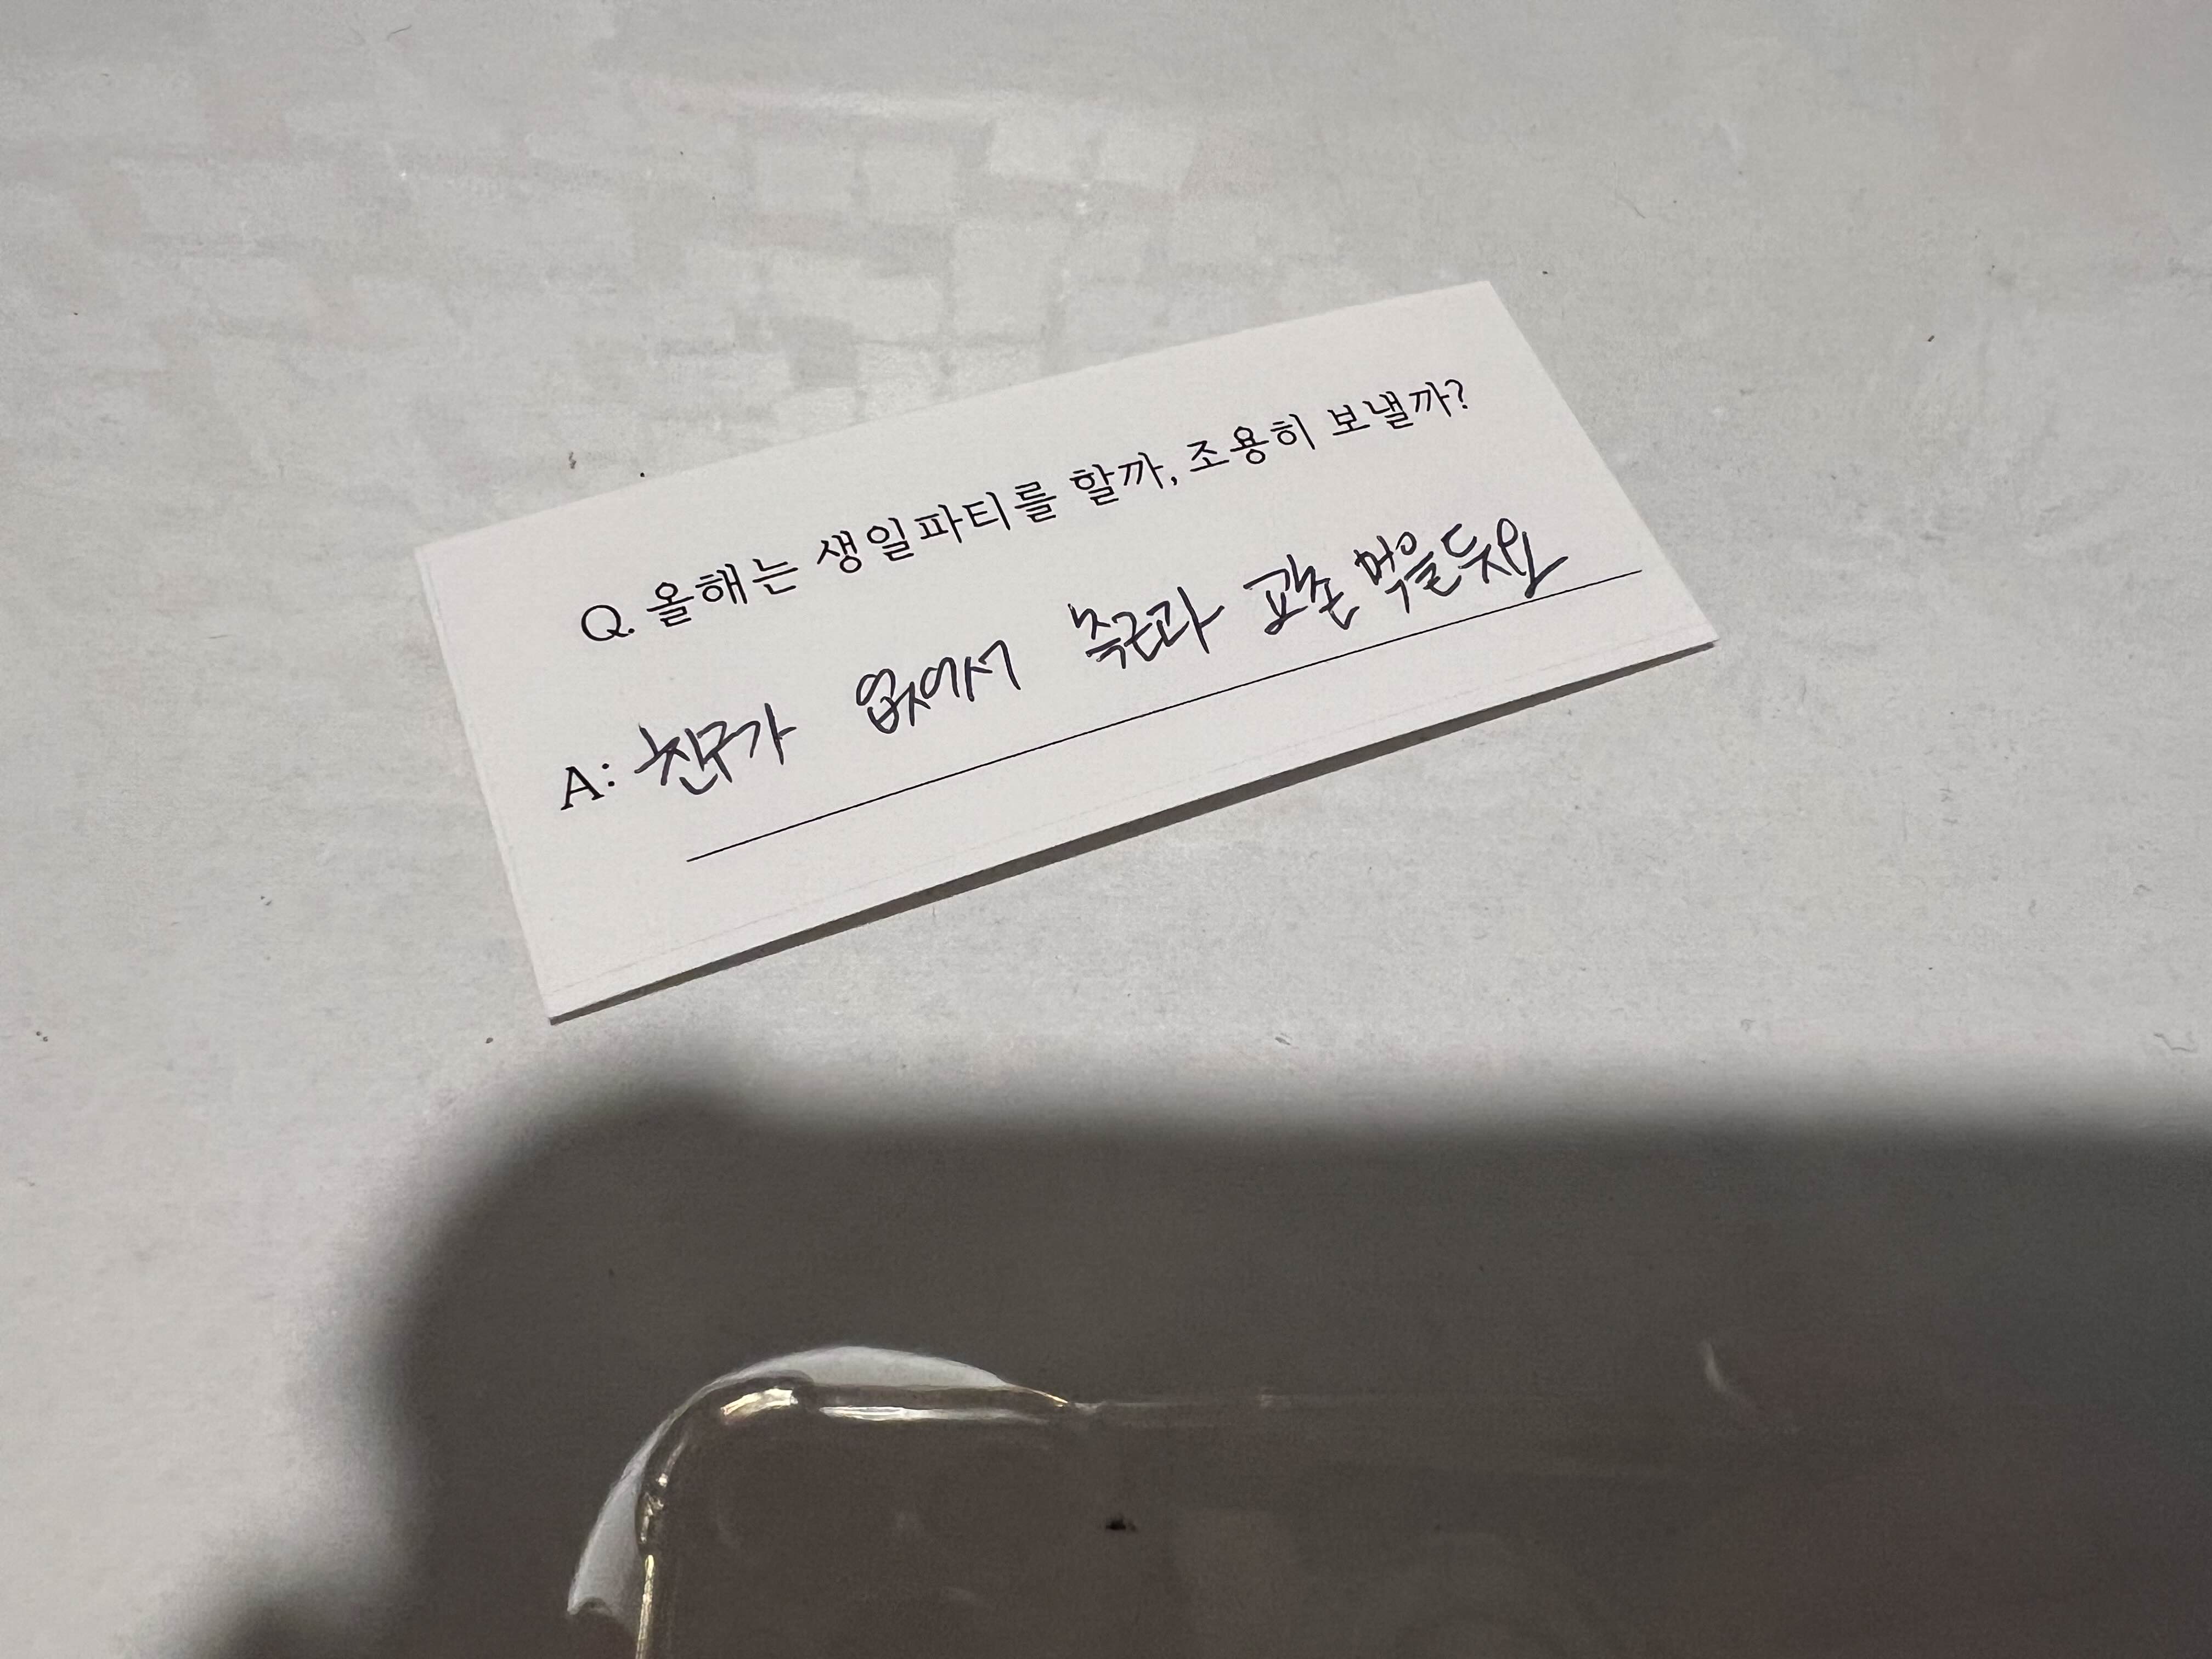 Q. 올해는 생일파티를 할까, 조용히 보낼까?
A: 친구가 없어서 측근과 교촌 먹을듯요